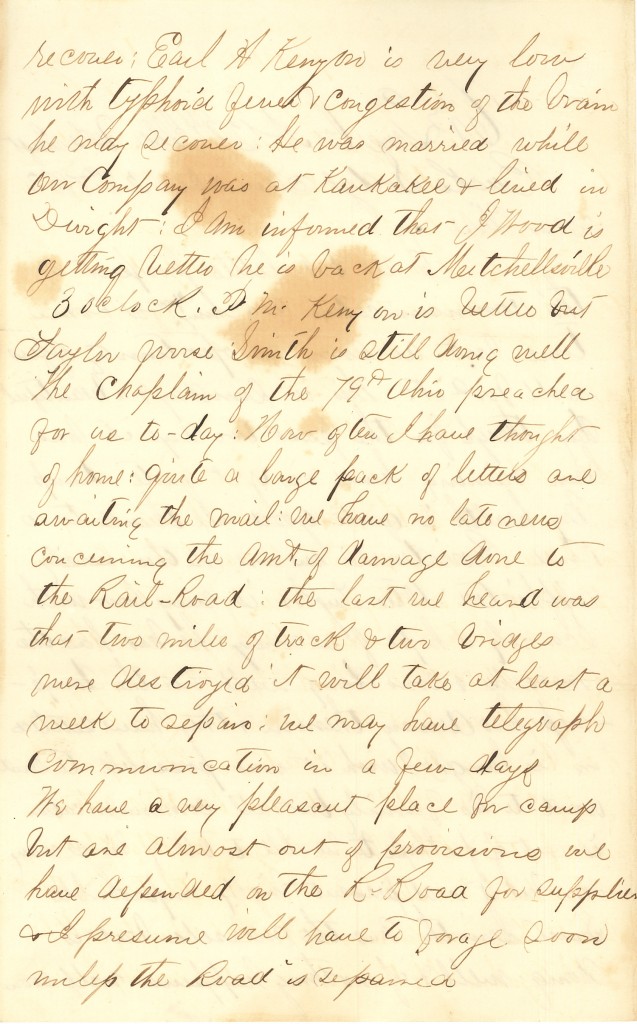 recover; Earl H Kenyon is very low
with typhoid fever & congestion of the brain
he may recover: He was married while
our Company was at Kankakee & lived in
Dwight: I am informed that J Wood is
getting better he is back at Mitchellsville
3 oclock. P M. Kenyon is better but
Taylor worse: Smith is still doing well
The Chaplain of the 79th Ohio preached
for us to-day: How often I have thought
of home: quite a large pack of letters are
awaiting the mail: we have no late news
concerning the amt. of damage done to
the Rail-Road: the last we heard was
that two miles of track & two bridges
were destroyed it will take at least a
week to repair: we may have telegraph
Communication in a few days
We have a very pleasant place for camp
but are almost out of provisions we
have depended on the R-Road for supplies
& I presume will have to forage soon
unless the Road is repaired